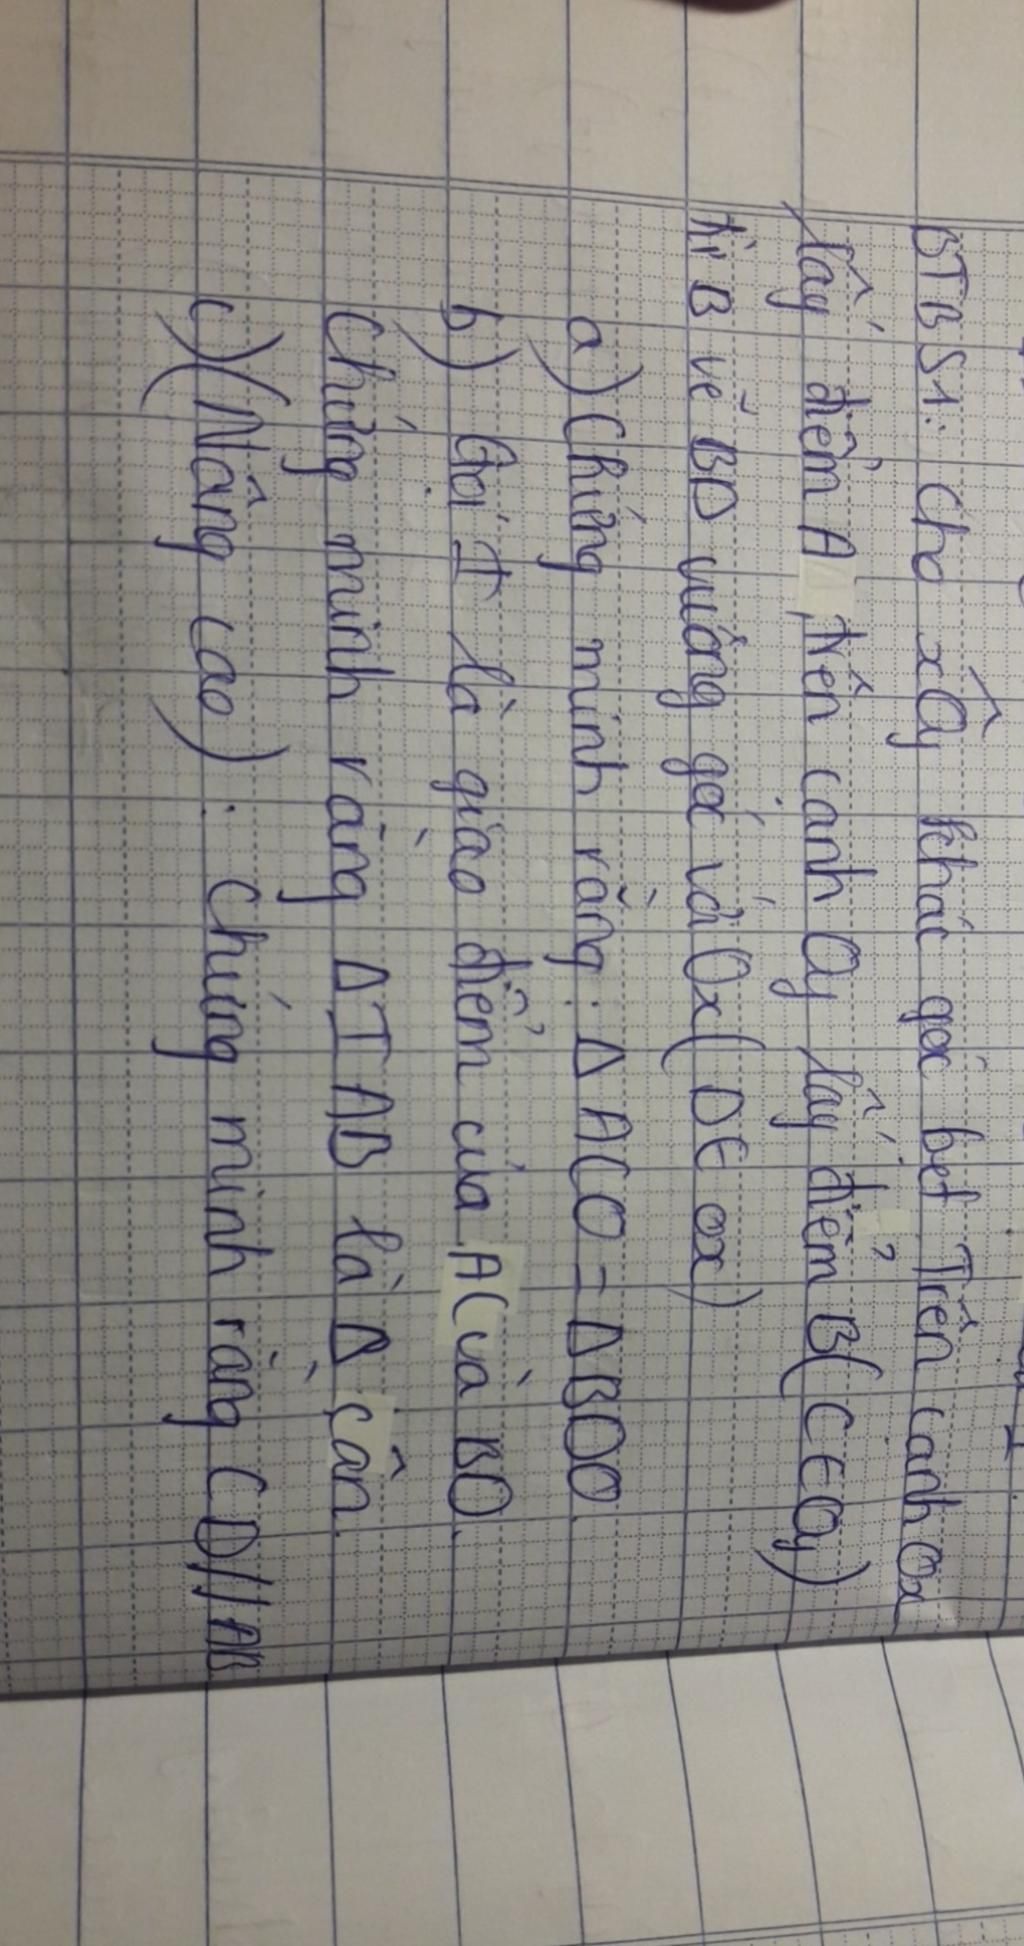 BTBS1: Cho xOy khác góc bẹt Trên cạnh Ox
lấy điểm A, Nên cạnh Oy lấy điểm B (C ∈ Oy)
từ B vẽ BD vuông góc với Ox (D ∈ ox)
a) Chứng minh rằng: Δ ACO = Δ BDO
b) Gọi I là giao điểm của AC và BD.
Chứng minh rằng Δ IAB là Δ cân.
c) (Nâng cao): Chứng minh rằng CD // AB